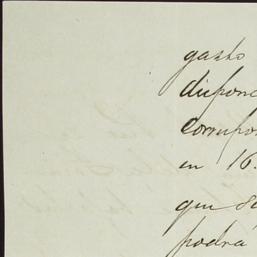 gasto
dispone
corrupon
en 16
que se
podrá